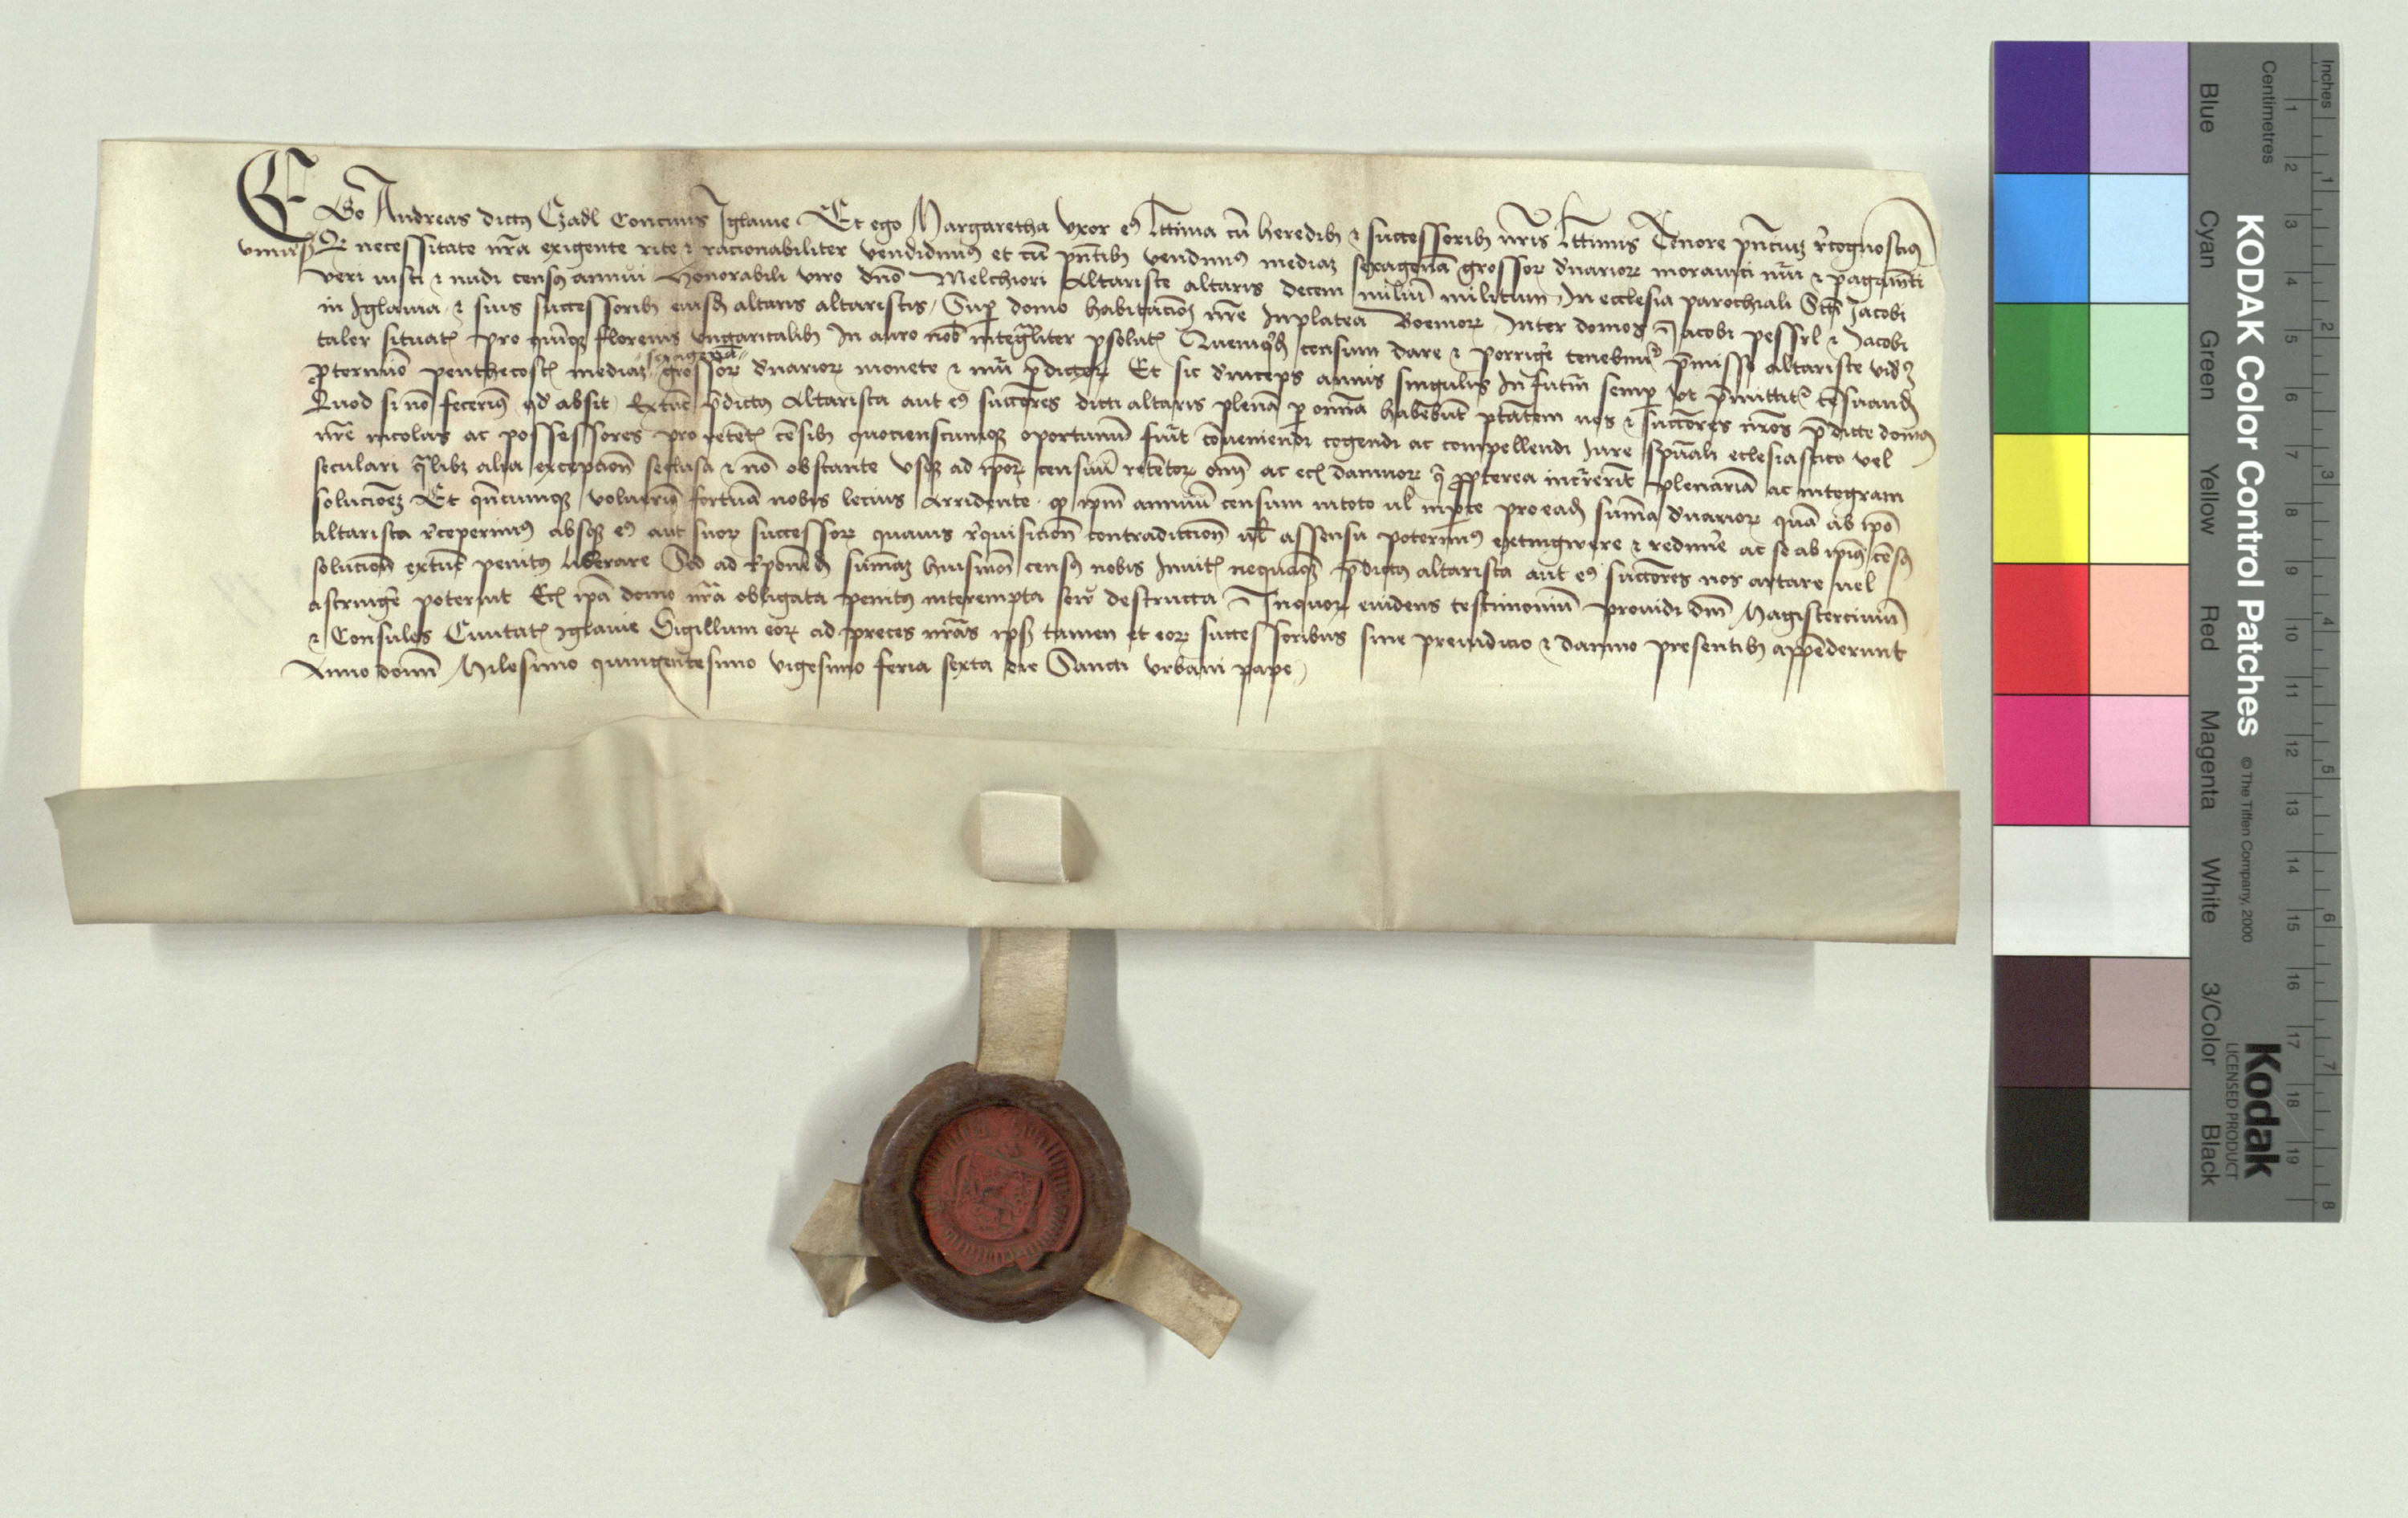 EGo Andreas dictus Czadl Concivis Iglavie Et ego Margaretha Uxor eius lttima cum heredibus et successoribus nostris lttimis Tenore pntium recognoscimus
universis Quod necessitate nostra exigente rite et racionabiliter vendidimus et cum pntibus vendimus mediam sexagenam grossorum denariorum moravici nri et pagamenti
veri iusti et nudi census annui Honorabili viro dno Melchiori Altariste altaris decem milium militum In ecclesia parochiali Scti Jacobi
in Iglavia et suis successoribus eiusdem altaris altaristis Super domo habitacionis nre In platea Boemorum Inter domos Jacobi pesserl et Jacobi
taler situatis pro quinque florenis ungaricalibus In auro nobis integraliter persolutis Quemquidem censum dare et porrigere tenebimur premisso altariste videlicet
pro termino penthecostes mediam sexagenam grossorum denariorum monete et nri predictorum Et sic deinceps annis singulis In futurum semper ut premittitur censuando
Quod si non fecerimus quod absit Extunc predictus Altarista aut eius successores dicti altaris plenam per omnia habebunt ptatem nos et successores nros predicte domus
nre incolas ac possessores pro retentis censibus quocienscumque oportunum fuerit conveniendi cogendi ac compellendi Iure spirituali eclesiastico vel
seculari qualibet alia exceptione seclusa et non obstante usque ad ipsorum censuum retentorum omnium ac eciam damnorum que propterea increverint plenariam ac integram
solucionem Et quandocumque voluerimus fortuna nobis lecius Arridente quod ipsum annuum censum in toto vel in parte pro eadem summa denariorum quam ab ipso
altarista receperimus absque eius aut suorum successorum quavis requisicione contradiccione vel assensu poterimus extingwere et redimere ac se ab ipsius census
solucione extunc penitus liberare Sed ad reponendum summam huiusmodi census nobis Invitis nequaquam predictus altarista aut eius successores nos artare vel
astringere poterint Eciam ipsa domo nostra obligata penitus interempta seu destructa In quorum evidens testimonium providi dni Magistercivium
et Consules Civitatis Iglavie Sigillum eorum ad preces nostras ipsis tamen et eorum successoribus sine preiudicio et damno presentibus appenderunt
Anno domini Milesimo quingentesimo vigesimo feria sexta die Sancti Urbani pape
KODAK Color Control Patches © The Tiffen Company, 2000 Kodak
LICENSED PRODUCT
Blue Cyan Green Yellow Red Magenta White 3/Color Black
Centimetres 1 2 3 4 5 6 7 8 9 10 11 12 13 14 15 16 17 18 19
Inches 1 2 3 4 5 6 7 8